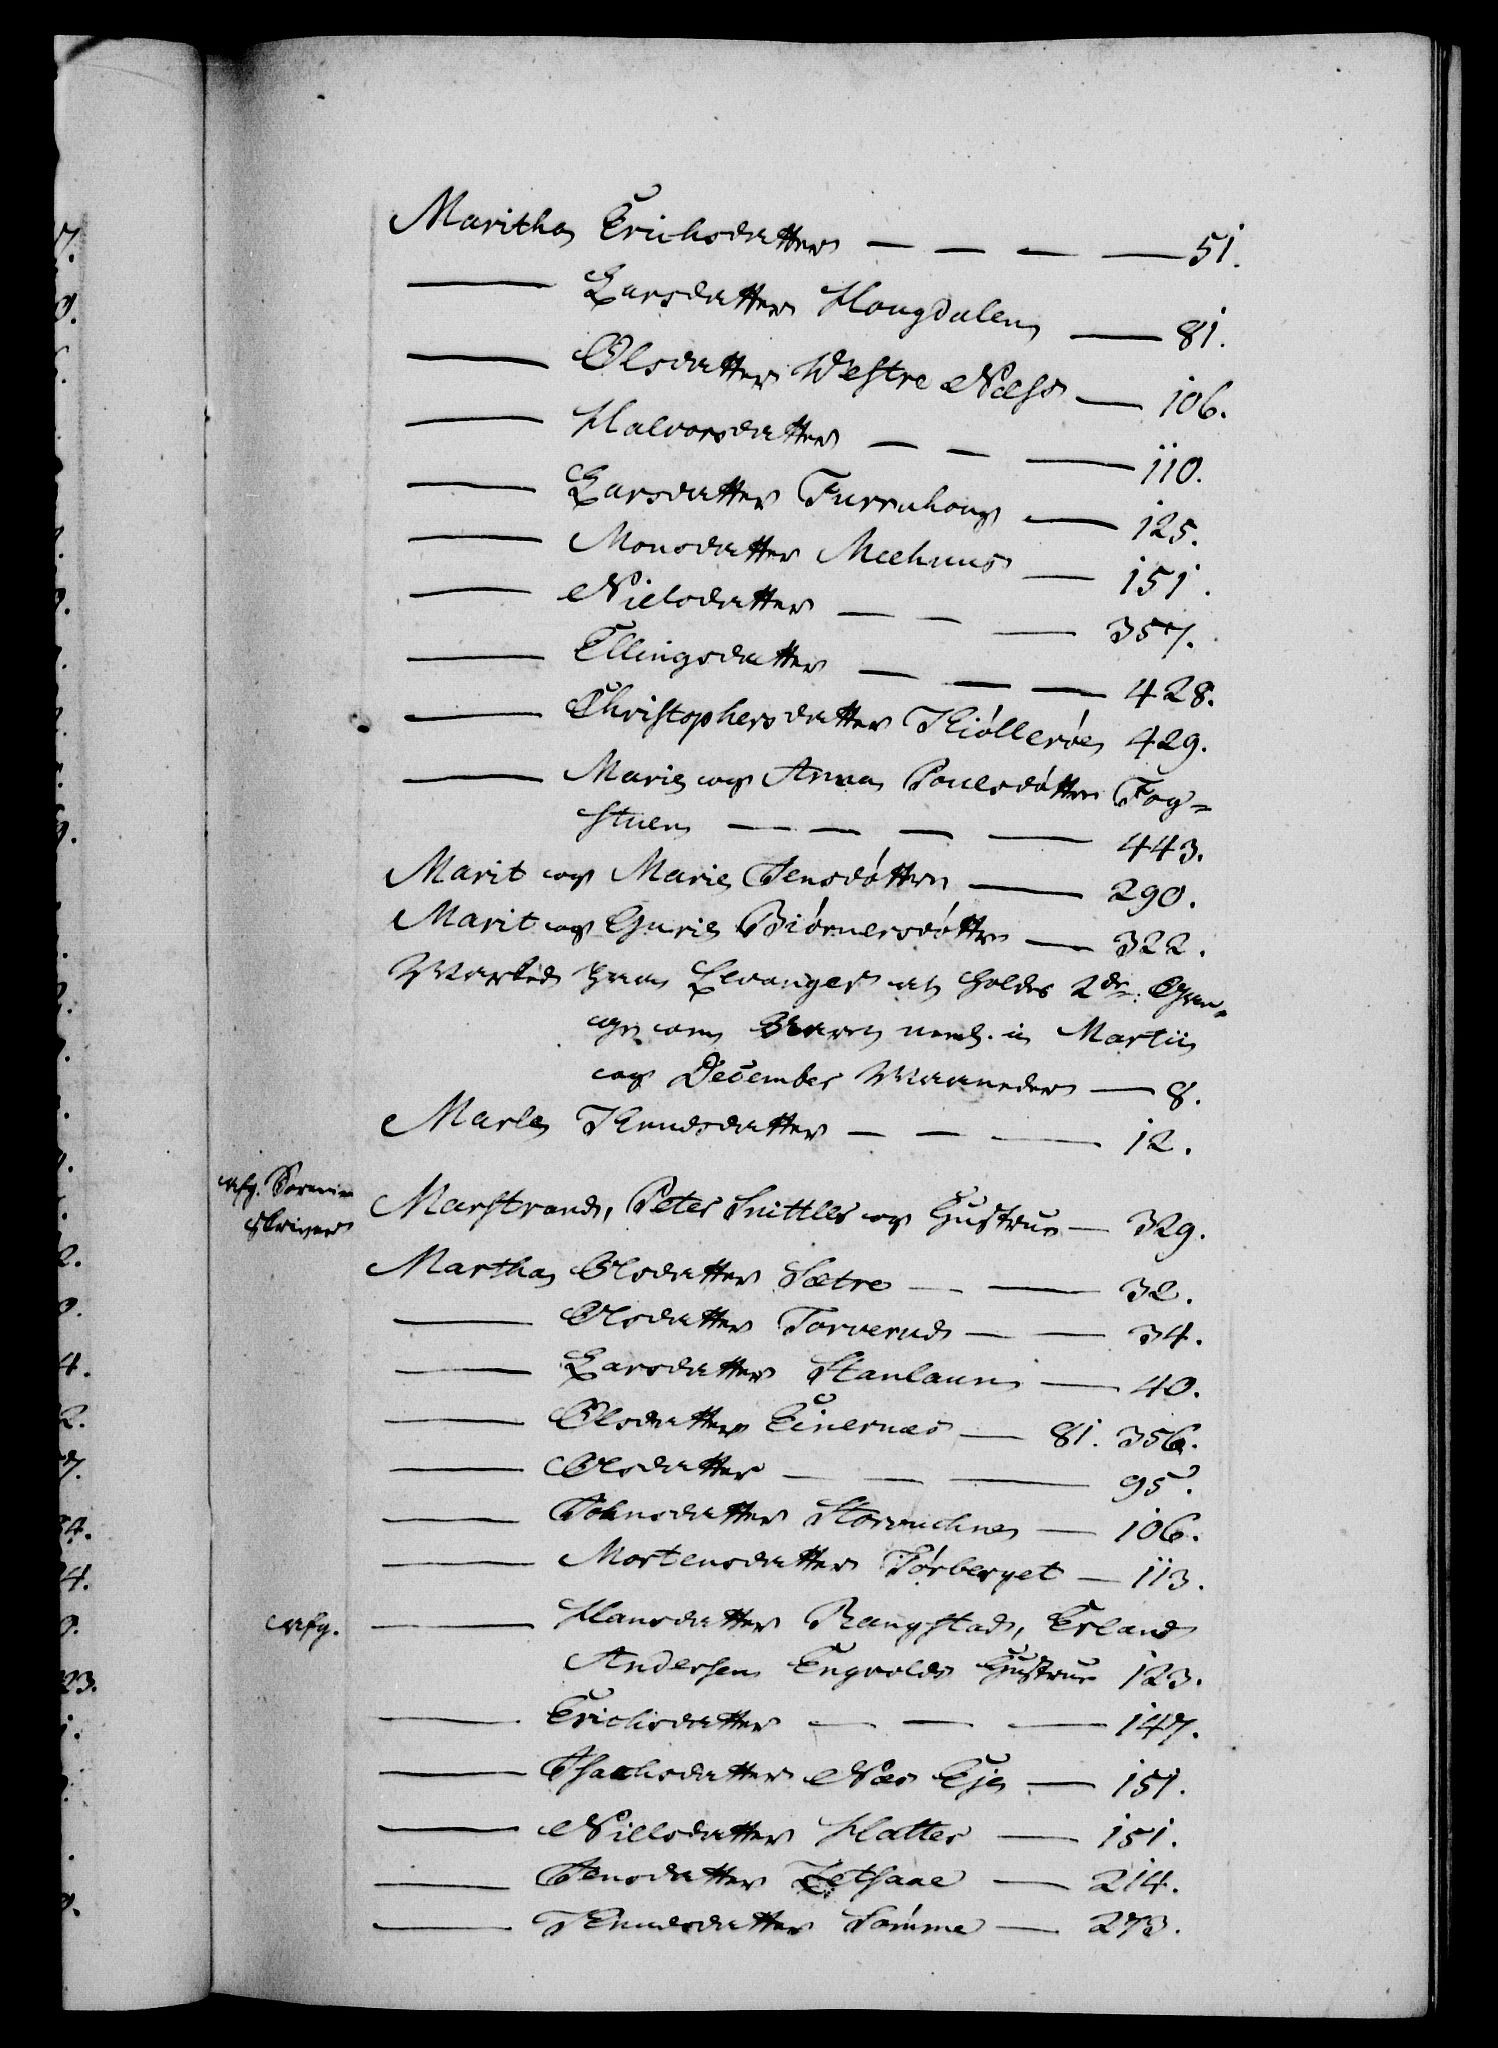 Maritha Erichsdatter — — — — 51.
—— Larsdatter Hougdalen — 81.
—— Olsdatter Westre Næss — 106.
—— Halvorsdatter — — — 110.
—— Larsdatter Furruhoug — 125.
—— Monsdatter Meehuus — 151.
—— Nielsdatter — — — 357.
—— Ellingsdatter — — — 428.
—— Christophersdatter Kiølleröe 429.
—— Marie og Anna Poulsdøttre Fog=
stuen — — — — 443.
Marit og Marie Jensdøttre — 290.
Marit og Gurie Biørnersdøttre — 322.
Marked paa Levanger at holdes 2de Gan=
ge om Aaret nemlig i Martii
og December Maaneder — 8.
Marle Knudsdatter — — — 12.
afg. Soren=
skriver
Marstrand, Peter Snittler og Hustrue — 329.
Martha Olsdatter Sætre — — 32.
—— Olsdatter Torverud — — 34.
—— Larsdatter Stanlaun — 40.
—— Olsdatter Einernæs — 81. 356.
—— Olsdatter — — — 95.
—— Johnsdatter — 106.
—— Mortensdatter Tørberget — 113.
afg.
—— Hansdatter Rangstad, Erland
Andersen Engvolds Hustrue 123.
—— Erichsdatter — — — 147.
—— Isachsdatter Næs Eje — 151.
—— Nielsdatter Hatter — 151.
—— Jensdatter — 214.
—— Knudsdatter Sømme — 273.